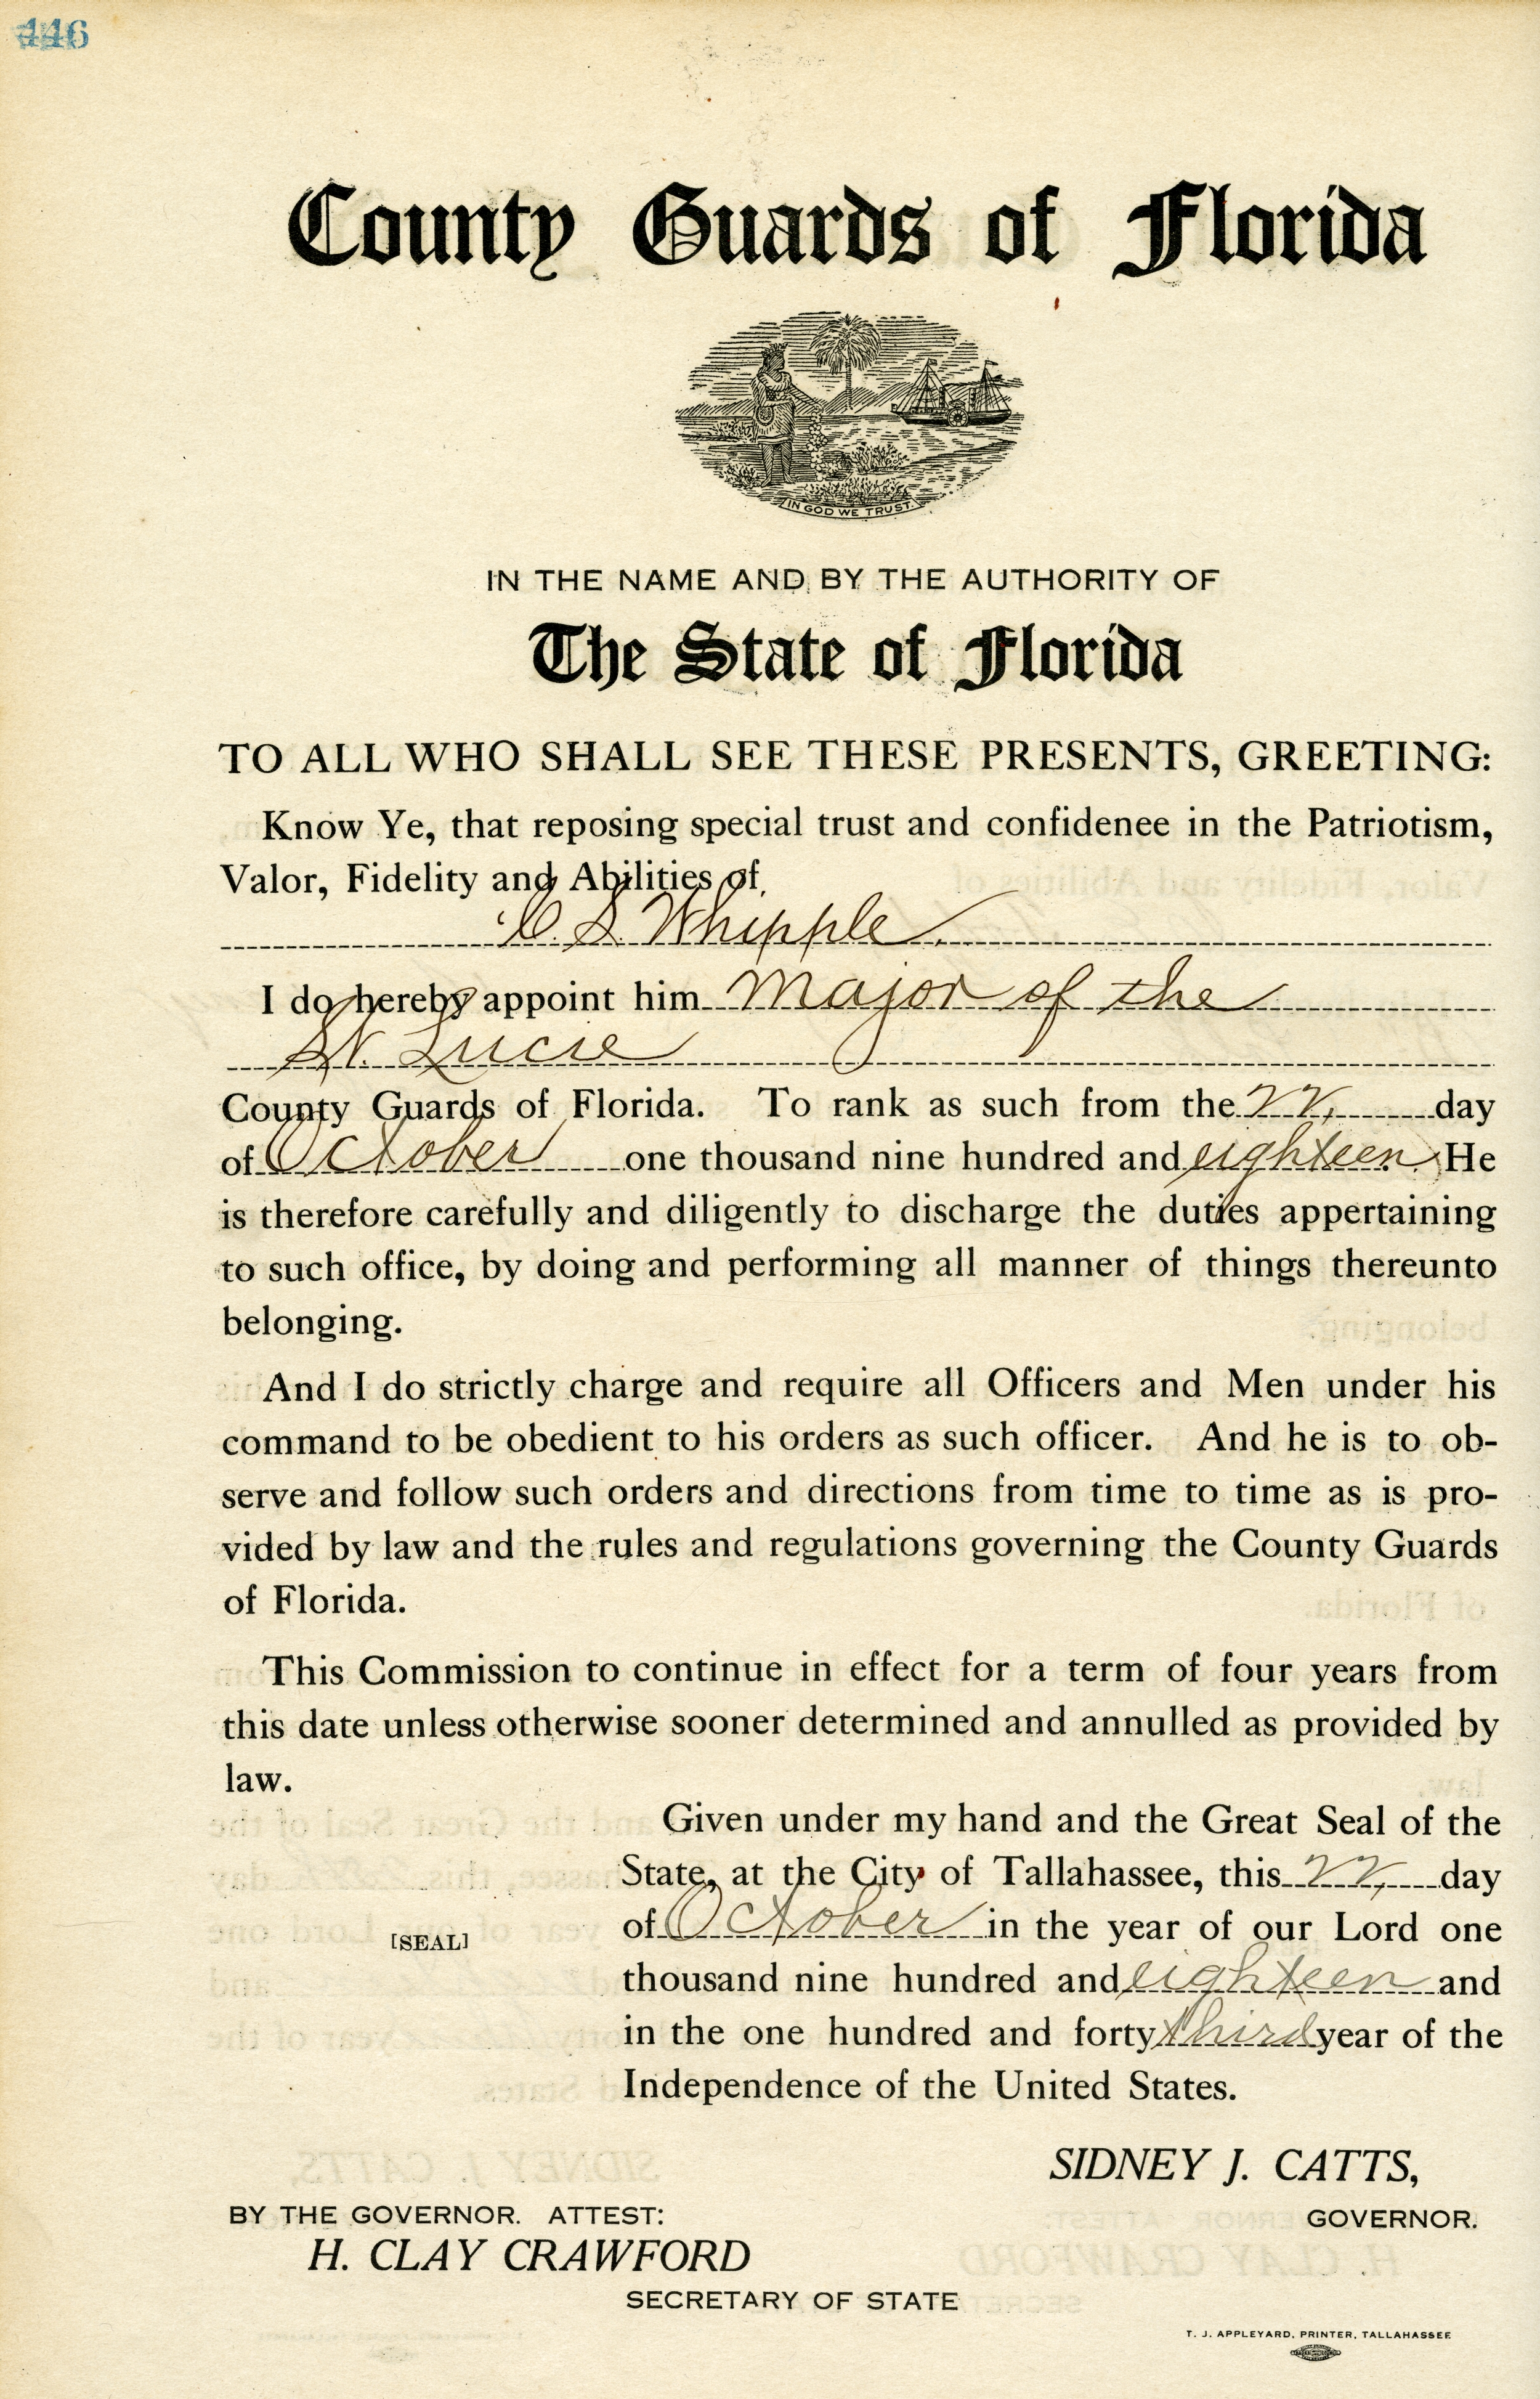 446
County Guards of Florida
IN GOD WE TRUST.
IN THE NAME AND BY THE AUTHORITY OF
The State of Florida
TO ALL WHO SHALL SEE THESE PRESENTS, GREETING:
Know Ye, that reposing special trust and confidenee in the Patriotism,
Valor, Fidelity and Abilities of
C. S. Whipple.
I do hereby appoint him Major of the
St. Lucie
County Guards of Florida. To rank as such from the 22, day
of October one thousand nine hundred and eighteen. He
is therefore carefully and diligently to discharge the duties appertaining
to such office, by doing and performing all manner of things thereunto
belonging.
And I do strictly charge and require all Officers and Men under his
command to be obedient to his orders as such officer. And he is to ob-
serve and follow such orders and directions from time to time as is pro-
vided by law and the rules and regulations governing the County Guards
of Florida.
This Commission to continue in effect for a term of four years from
this date unless otherwise sooner determined and annulled as provided by
law.
Given under my hand and the Great Seal of the
State, at the City of Tallahassee, this 22, day
of October in the year of our Lord one
[SEAL]
thousand nine hundred and eighteen and
in the one hundred and forty third year of the
Independence of the United States.
SIDNEY J. CATTS,
GOVERNOR.
BY THE GOVERNOR. ATTEST:
H. CLAY CRAWFORD
SECRETARY OF STATE
T. J. APPLEYARD, PRINTER, TALLAHASSEE